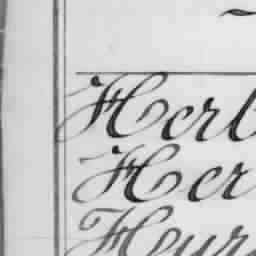 Herb
Her
Hur